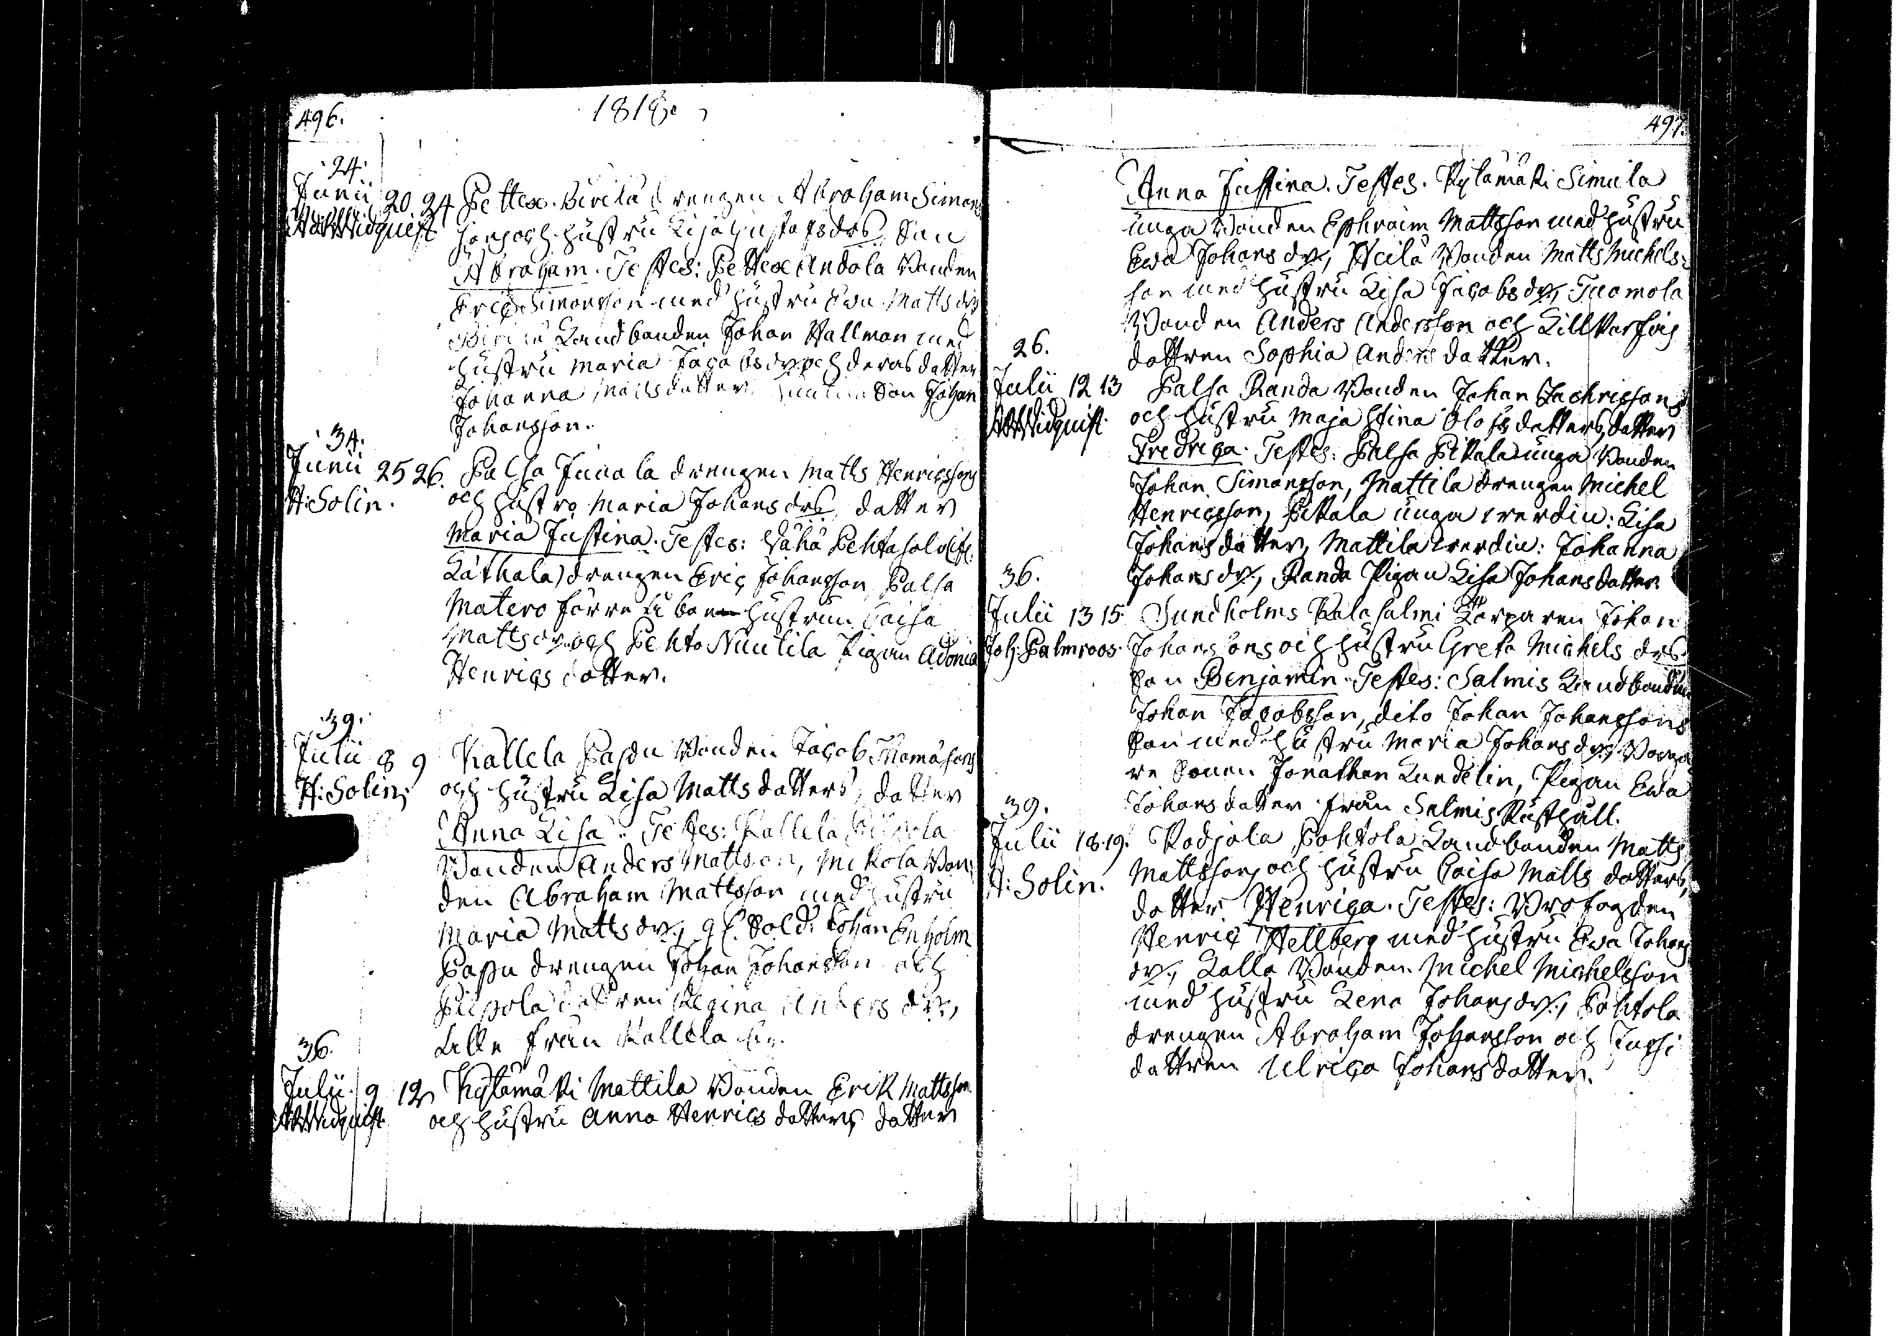 496.
1818.
24.
Junii 20 24 Pettex. Birila drengen Abraham Simons
A:Widquist sons och hustru Lisa Gustafsdrs, Son
Abraham. Testes: Pettex Andola Bonden
Eric Simonsson med hustru Ewa Mattsdr,
Birila Landbonden Johan Hallman med
hustru Maria Jacobsdr, och deras dotter
Johanna Mattsdotter Son Johan
Johansson.
34.
Junii 25 26. Palsa Junala drengen Matts Henricssons
H: Solin. och hustro Maria Johansdrs, dotter
Maria Justina. Testes: Wähä Pehtasalo
Laihala) drengen Eric Johansson, Palsa
Matero förre hustrun Caisa
Mattsdr. och Pehto Nuutila Pigan Adonia
Henrics dotter.
39.
Julii 8 9 Kallela Papu Bonden Jacob Thomassons
H: Solin, och hustru Lisa Mattsdotters, dotter
Anna Lisa. Testes: Kallela Pispola
Bonden Anders Mattsson, Mikola Bon-
den Abraham Mattsson med hustru
Maria Mattsdr., gl. Sold. Johan Enholm
Papu drengen Johan Johansson och
Pispola dottren Regina Anders dr.,
alle från Kallela by.
36.
Julii 9 12 Kylämäki Mattila Bonden Erik Mattsson
A:Widquist och hustru Anna Henrics dotters, dotter
497.
Anna Justina. Testes. Kylämäki Simula
unga Bonden Ephraim Mattsson med hustru
Ewa Johansdr., Heilä Bonden Matts Michels-
son med hustru Lisa Jacobsdr., Tuomola
Bonden Anders Andersson och
dottren Sophia Anders dotter.
26.
Julii 12 13 Palsa Randa Bonden Johan Zachrissons
A:Widquist och hustru Maja Stina Olofs dotters, dotter
Fredrica. Testes: Palsa Pikala unga Bonden
Johan Simonsson, Mattila drengen Michel
Henricsson, Pikala unga werdin: Lisa
Johans dotter, Mattila werdin: Johanna
Johansdr., Randa Pigan Lisa Johans dotter.
36.
Julii 13 15 Sundholms Kalasalmi Torparen Johan
Joh: Palmroos. Johanssons och hustru Greta Michels drs
Son Benjamin. Testes: Salmis Landbonden
Johan Jacobsson, dito Johan Johanssons
Son med hustru Maria Johansdr.,
re Sonen Jonathan Lundelin, Pigan Ewa
Johans dotter från Salmis Rusthåll.
39.
Julii 18. 19. Kodjala Pohtola Landbonden Matts
H: Solin. Mattssons och hustru Caisa Matts dotters,
dotter Henrica. Testes: Brofogden
Henric Hellberg med hustru Ewa Johans
dr., Lalla Bonden Michel Michelsson
med hustru Lena Johansdr., Pohtola
drengen Abraham Johansson och Jussi
dottren Ulrica Johans dotter.